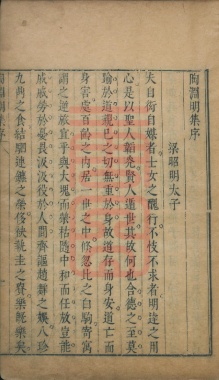 陶淵明集序
梁昭明太子
夫自衒自媒者士女之醜行不忮不求者明達之用
心是以聖人韜光賢人遁世其故何也含德之至莫
踰於道親己之切無重於身故道存而身安道亡而
身害處百齡之內居一世之中倏忽比之白駒寄寓
謂之逆旅宜乎與大塊而榮枯隨中和而任放豈能
戚戚勞於憂畏汲汲役於人間齊謳趙舞之娛八珍
九鼎之食結駟連鑣之榮侈袂執圭之貴樂旣樂矣